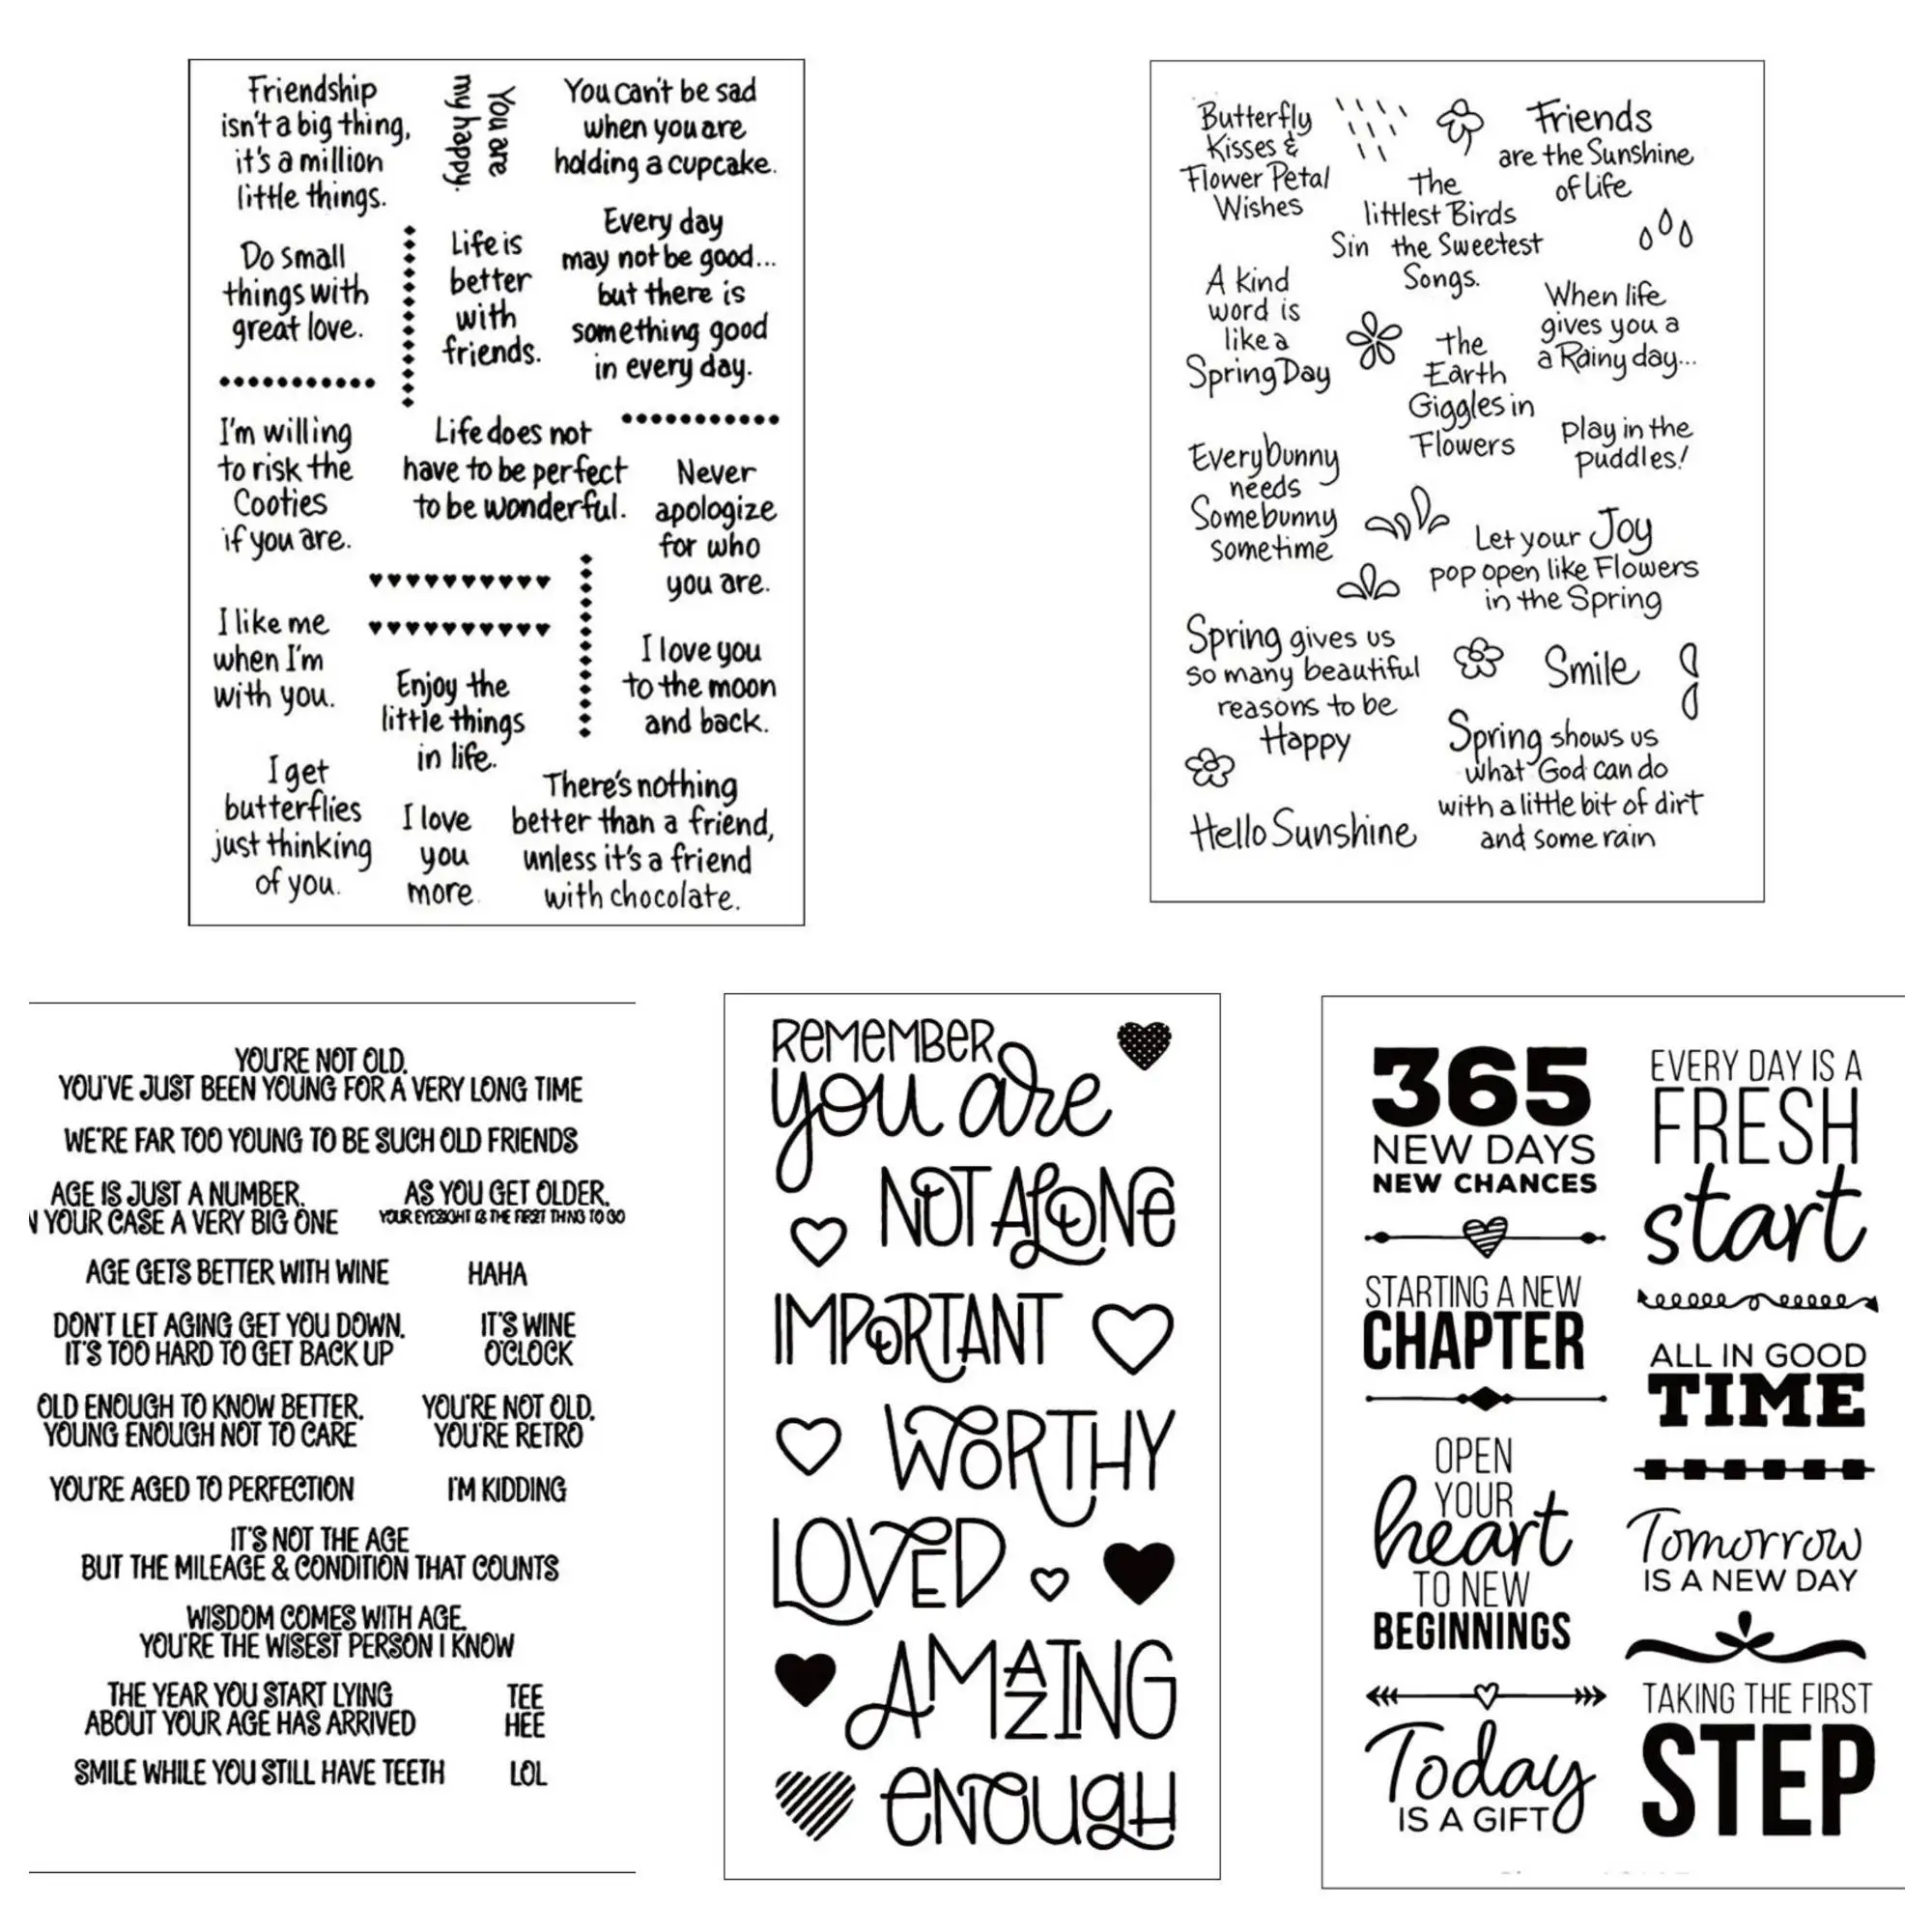 Friendship
isn't a big thing,
it's a million
little things.
You are
my happy.
You can't be sad
when you are
holding a cupcake.
Do small
things with
great love.
Life is
better
with
friends.
Every day
may not be good...
but there is
something good
in every day.
I'm willing
to risk the
Cooties
if you are.
Life does not
have to be perfect
to be wonderful.
Never
apologize
for who
you are.
I like me
when I'm
with you.
Enjoy the
little things
in life.
I love you
to the moon
and back.
I get
butterflies
just thinking
of you.
I love
you
more.
There's nothing
better than a friend,
unless it's a friend
with chocolate.
Butterfly
Kisses &
Flower Petal
Wishes
Friends
are the Sunshine
of Life
The
littlest Birds
Sin the Sweetest
Songs.
A kind
word is
like a
Spring Day
When life
gives you a
a Rainy day...
the
Earth
Giggles in
Flowers
play in the
puddles!
Everybunny
needs
Somebunny
sometime
Let your Joy
pop open like Flowers
in the Spring
Spring gives us
so many beautiful
reasons to be
Happy
Smile
Spring shows us
what God can do
with a little bit of dirt
and some rain
Hello Sunshine
YOU'RE NOT OLD.
YOU'VE JUST BEEN YOUNG FOR A VERY LONG TIME
WE'RE FAR TOO YOUNG TO BE SUCH OLD FRIENDS
AGE IS JUST A NUMBER.
N YOUR CASE A VERY BIG ONE
AS YOU GET OLDER.
YOUR EYESIGHT IS THE FIRST THING TO GO
AGE GETS BETTER WITH WINE
HAHA
DON'T LET AGING GET YOU DOWN.
IT'S TOO HARD TO GET BACK UP
IT'S WINE
O'CLOCK
OLD ENOUGH TO KNOW BETTER.
YOUNG ENOUGH NOT TO CARE
YOU'RE NOT OLD.
YOU'RE RETRO
YOU'RE AGED TO PERFECTION
I'M KIDDING
IT'S NOT THE AGE
BUT THE MILEAGE & CONDITION THAT COUNTS
WISDOM COMES WITH AGE.
YOU'RE THE WISEST PERSON I KNOW
THE YEAR YOU START LYING
ABOUT YOUR AGE HAS ARRIVED
TEE
HEE
SMILE WHILE YOU STILL HAVE TEETH
LOL
REMEMBER
you are
NOT ALONE
IMPORTANT
WORTHY
LOVED
AMAZING
ENOUGH
365
NEW DAYS
NEW CHANCES
STARTING A NEW
CHAPTER
OPEN
YOUR
heart
TO NEW
BEGINNINGS
Today
IS A GIFT
EVERY DAY IS A
FRESH
start
ALL IN GOOD
TIME
Tomorrow
IS A NEW DAY
TAKING THE FIRST
STEP